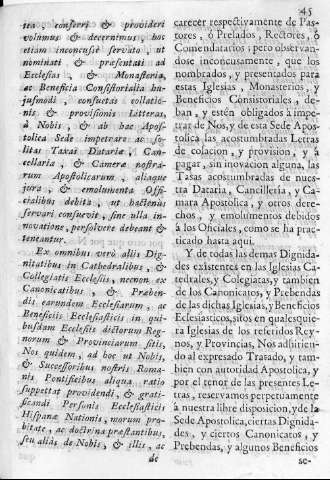 45
tra, conferri & provideri
volumus & decernimus, hoc
etiam inconcusè servato, ut
nominati & præsentati ad
Ecclesias, & Monasteria,
ac Beneficia Consistorialia hu-
jusmodi, consuetas collatio-
nis & provisionis Litteras,
à Nobis, & ab hac Apos-
tolica Sede impetrare ac so-
litas Taxas Datariæ, Can-
cellariæ, & Cameræ nostra-
rum Apostolicarum, aliaque
jura, & emolumenta Offi-
cialibus debita, ut hactenùs
servari consuevit, sine ulla in-
novatione, persolvere debeant &
teneantur.
Ex omnibus verò aliis Dig-
nitatibus in Cathedralibus, &
Collegiatis Ecclesiis, necnon ex
Canonicatibus, & Præben-
dis earundem Ecclesiarum, ac
Beneficiis Ecclesiasticis in qui-
busdam Ecclesiis dictorum Reg-
norum & Provinciarum sitis,
Nos quidem, ad hoc ut Nobis,
& Successoribus nostris Roma-
nis Pontificibus aliqua ratio
suppetat providendi, & grati-
ficandi Personis Ecclesiasticis
Hispanæ Nationis, morum pro-
bitate, ac doctrina præstantibus,
seu aliàs de Nobis, & illis, ac
de
carecer respectivamente de Pas-
tores, ò Prelados, Rectores, ò
Comendatarios; pero observan-
dose inconcusamente, que los
nombrados, y presentados para
estas Iglesias, Monasterios, y
Beneficios Consistoriales, de-
ban, y estèn obligados à impe-
trar de Nos, y de esta Sede Apos-
tolica las acostumbradas Letras
de colacion, y provision, y à
pagar, sin inovacion alguna, las
Tasas acostumbradas de nues-
tra Dataria, Cancilleria, y Ca-
mara Apostolica, y otros dere-
chos, y emolumentos debidos
à los Oficiales, como se ha prac-
ticado hasta aqui.
Y de todas las demas Dignida-
des existentes en las Iglesias Ca-
tedrales, y Colegiatas, y tambien
de los Canonicatos, y Prebendas
de las dichas Iglesias, y Beneficios
Eclesiasticos, sitos en qualesquie-
ra Iglesias de los referidos Rey-
nos, y Provincias, Nos adhirien-
do al expresado Tratado, y tam-
bien con autoridad Apostolica, y
por el tenor de las presentes Le-
tras, reservamos perpetuamente
à nuestra libre disposicion, y de la
Sede Apostolica, ciertas Dignida-
des, y ciertos Canonicatos, y
Prebendas, y algunos Beneficios
se-